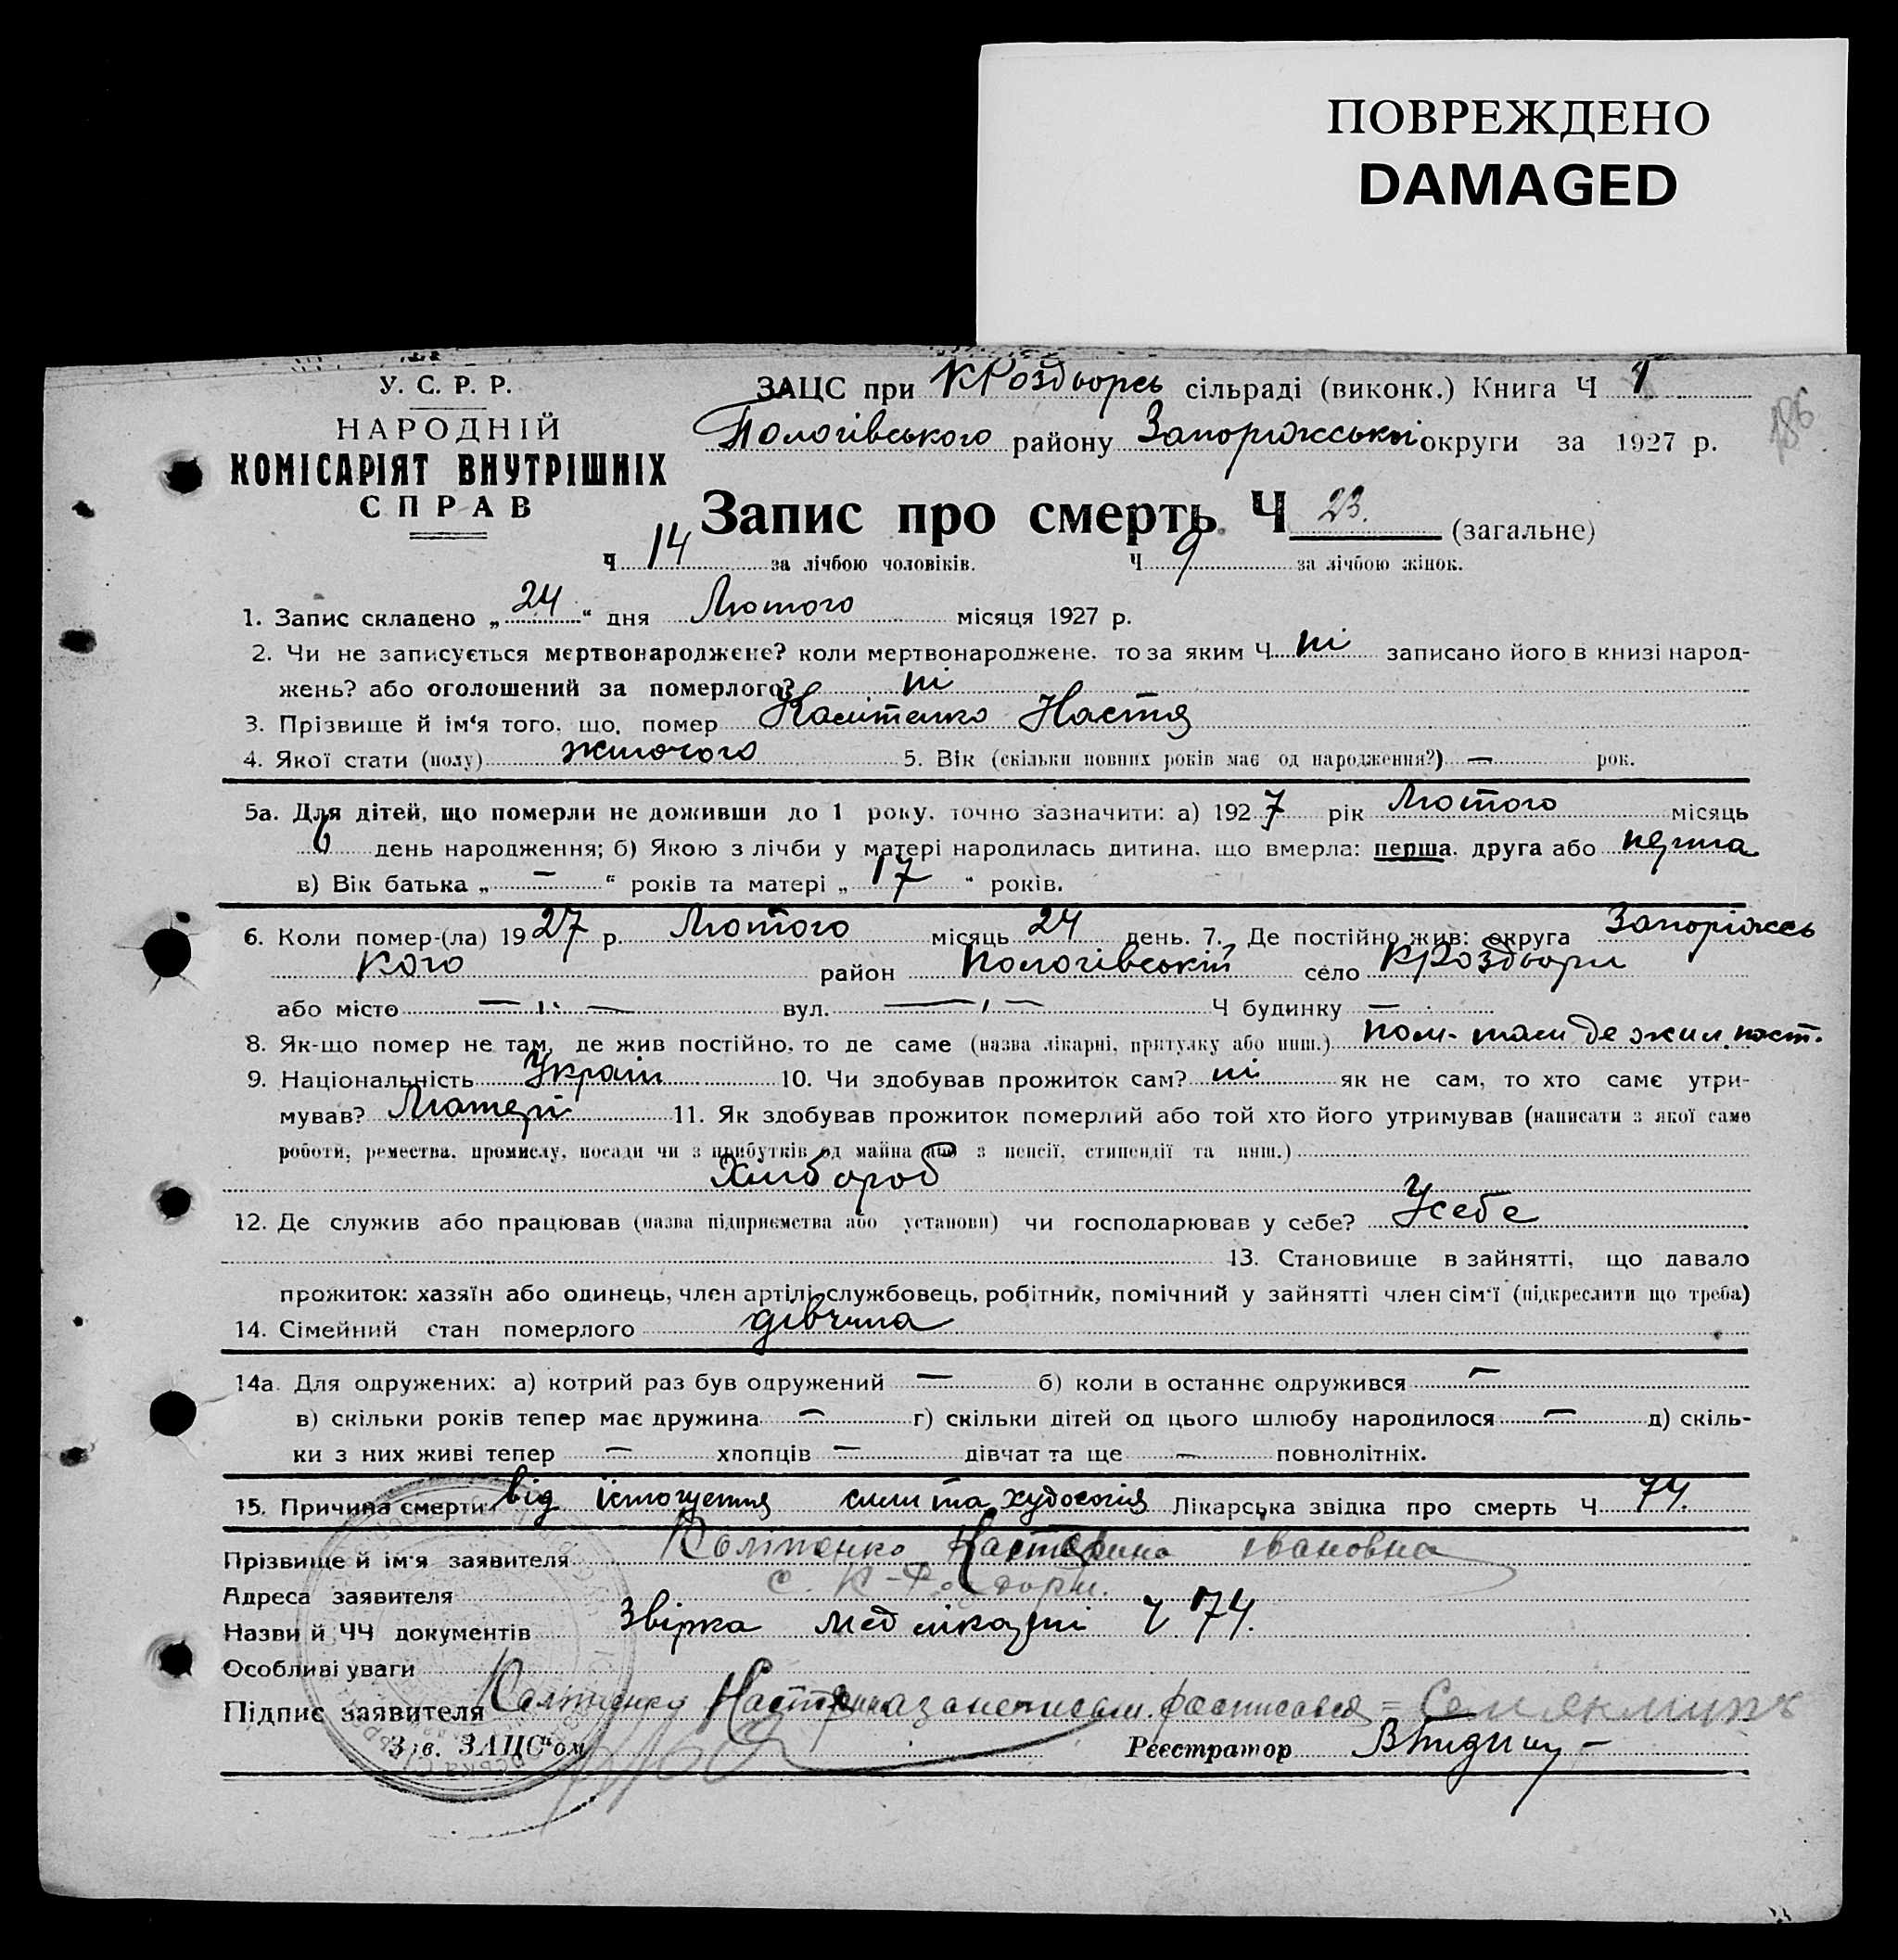 ПОВРЕЖДЕНО
DAMAGED
У. С. Р. Р.
НАРОДНІЙ
КОМІСАРІЯТ ВНУТРІШНІХ
СПРАВ
ЗАЦС при КРоздорсь сільраді (виконк.) Книга Ч 1
186
Пологівського району Запоріжської округи за 1927 р.
Запис про смерть Ч 23. (загальне)
Ч 14 за лічбою чоловіків. Ч 9 за лічбою жінок.
1. Запис складено „ 24 “ дня Лютого місяця 1927 р.
2. Чи не записується мертвонароджене? коли мертвонароджене, то за яким Ч ні записано його в книзі народ-
жень? або оголошений за померлого? ні
3. Прізвище й ім‘я того, що, помер Настя
4. Якої стати (полу) жіночого 5. Вік (скільки повних років має од народження?) — рок.
5а. Для дітей, що померли не доживши до 1 року, точно зазначити: а) 1927 рік Лютого місяць
6 день народження; б) Якою з лічби у матері народилась дитина, що вмерла: перша, друга або перша
в) Вік батька „ — “ років та матері „ 17 “ років.
6. Коли помер-(ла) 1927 р. Лютого місяць 24 день. 7. Де постійно жив: округа Запоріжсь
кого район Пологівський село КРоздори
або місто — „ — вул. — „ — Ч будинку —
8. Як-що помер не там, де жив постійно, то де саме (назва лікарні, притулку або инш.) пом. там де жил пост.
9. Національність Украін 10. Чи здобував прожиток сам? ні як не сам, то хто саме утри-
мував? Матері 11. Як здобував прожиток померлий або той хто його утримував (написати з якої саме
роботи, ремества, промислу, посади чи з прибутків од майна або з пенсії, стипендії та инш.)
Хлібороб
12. Де служив або працював (назва підприємства або установи) чи господарював у себе? Усебе
13. Становище в зайнятті, що давало
прожиток: хазяїн або одинець, член артілі, службовець, робітник, помічний у зайнятті член сім‘ї (підкреслити що треба)
14. Сімейний стан померлого дівчина
14а. Для одружених: а) котрий раз був одружений — б) коли в останнє одружився —
в) скільки років тепер має дружина — г) скільки дітей од цього шлюбу народилося — д) скіль-
ки з них живі тепер — хлопців — дівчат та ще — повнолітніх.
15. Причина смерти від істощення сили та худосочія Лікарська звідка про смерть Ч 74.
Прізвище й ім‘я заявителя Івановна
Адреса заявителя с. К-Роздори.
Назви й ЧЧ документів Звірка Мед Ч 74.
Особливі уваги
Підпис заявителя
Зав. ЗАЦС‘ом Реєстратор